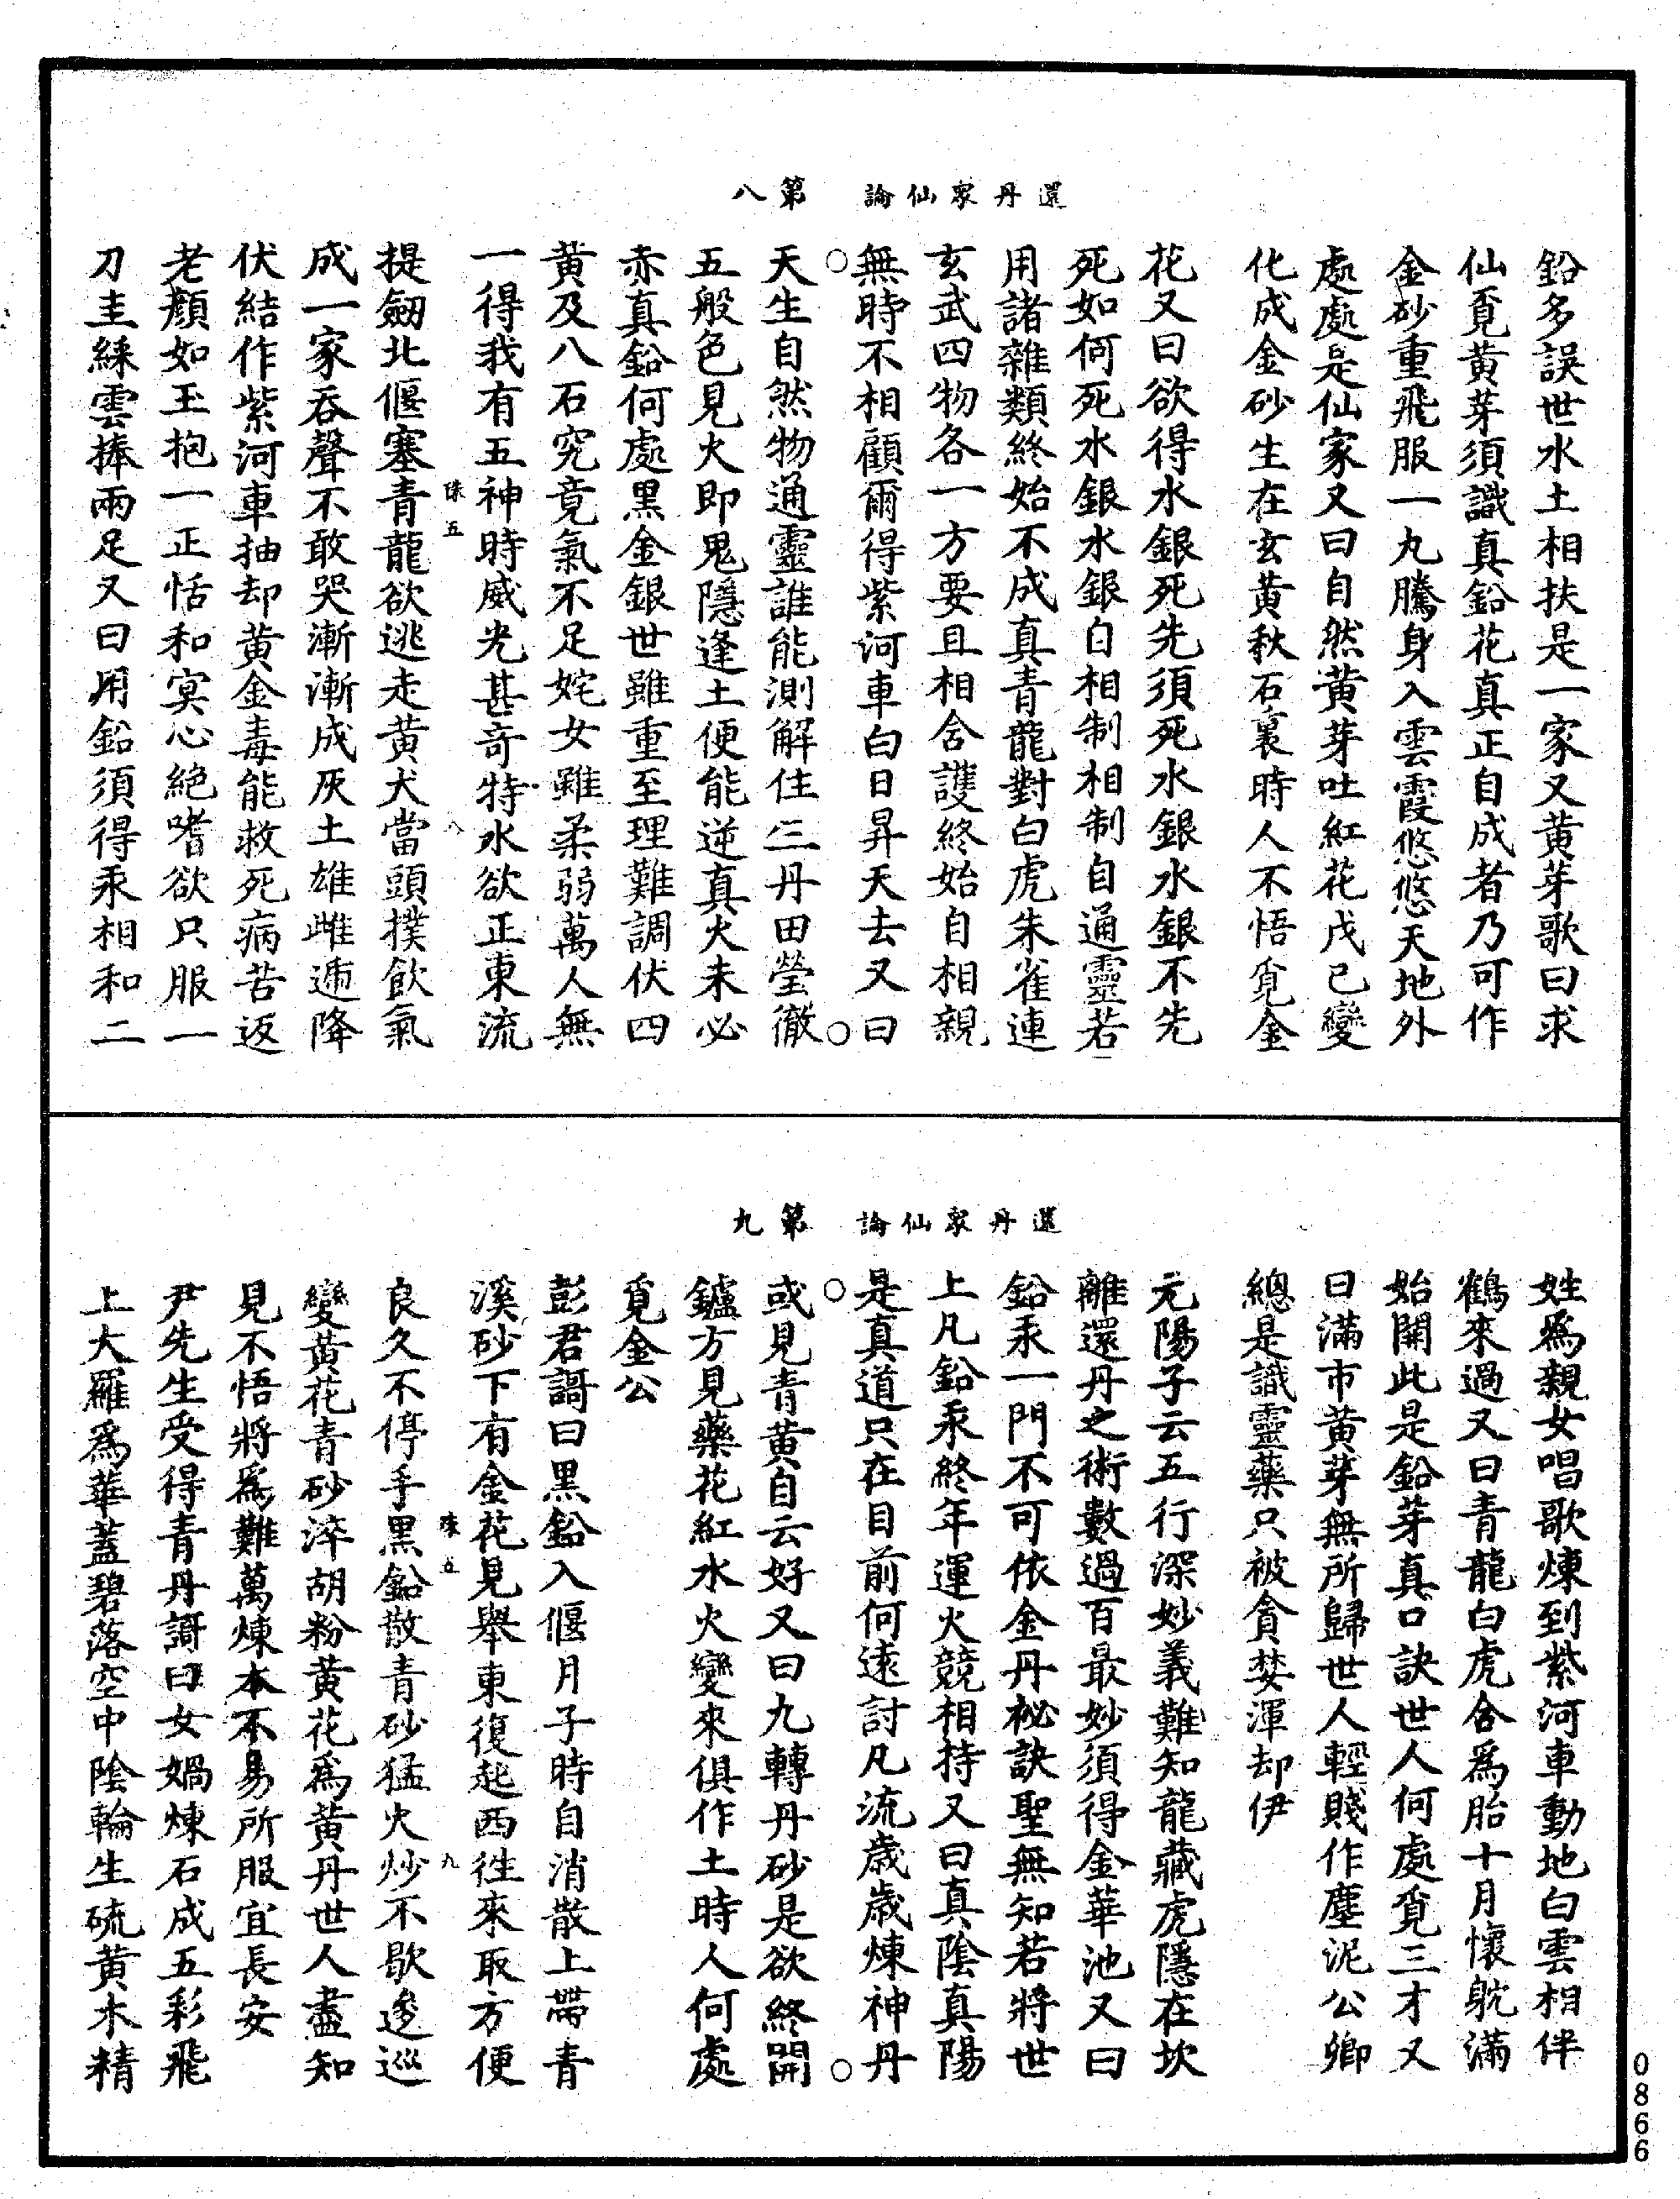 還丹衆仙論　第八
鉛多誤世水土相扶是一家又黃芽歌曰求
仙覓黃芽須識真鉛花真正自成者乃可作
金砂重飛服一丸騰身入雲霞悠悠天地外
處處是仙家又曰自然黃芽吐紅花戊己變
化成金砂生在玄黃秋石裏時人不悟覓金
花又曰欲得水銀死先須死水銀水銀不先
死如何死水銀水銀自相制相制自通靈若
用諸雜類終始不成真青龍對白虎朱雀連
玄武四物各一方要且相合護終始自相親
無時不相顧爾得紫河車白日昇天去又曰
天生自然物通靈誰能測解住三丹田瑩徹
五般色見火即鬼隱逢土便能逆真火未必
赤真鉛何處黑金銀世雖重至理難調伏四
黃及八石究竟氣不足姹女雖柔弱萬人無
一得我有五神時威光甚奇特水欲正東流
提劒北偃塞青龍欲逃走黃犬當頭撲飲氣
成一家吞聲不敢哭漸漸成灰土雄雌遞降
伏結作紫河車抽却黃金毒能救死病苦返
老顏如玉抱一正恬和冥心絕嗜欲只服一
刀圭綵雲捧兩足又曰用鉛須得汞相和二
還丹衆仙論　第九
姓爲親女唱歌煉到紫河車動地白雲相伴
鶴來過又曰青龍白虎合爲胎十月懷躭滿
始開此是鉛芽真口訣世人何處覓三才又
曰滿市黃芽無所歸世人輕賤作塵泥公卿
總是識靈藥只被貪婪渾却伊
元陽子云五行深妙義難知龍藏虎隱在坎
離還丹之術數過百最妙須得金華池又曰
鉛汞一門不可依金丹祕訣聖無知若將世
上凡鉛汞終年運火競相持又曰真陰真陽
是真道只在目前何遠討凡流歲歲煉神丹
或見青黃自云好又曰九轉丹砂是欲終開
鑪方見藥花紅水火變來俱作土時人何處
覓金公
彭君謌曰黑鉛入偃月子時自消散上帶青
溪砂下有金花見舉東復起西徃來取方便
良久不停手黑鉛散青砂猛火炒不歇逡巡
變黃花青砂淬胡粉黃花爲黃丹世人盡知
見不悟將爲難萬煉本不易所服宜長安
尹先生受得青丹謌曰女媧煉石成五彩飛
上大羅爲華蓋碧落空中陰輪生硫黃木精
0866